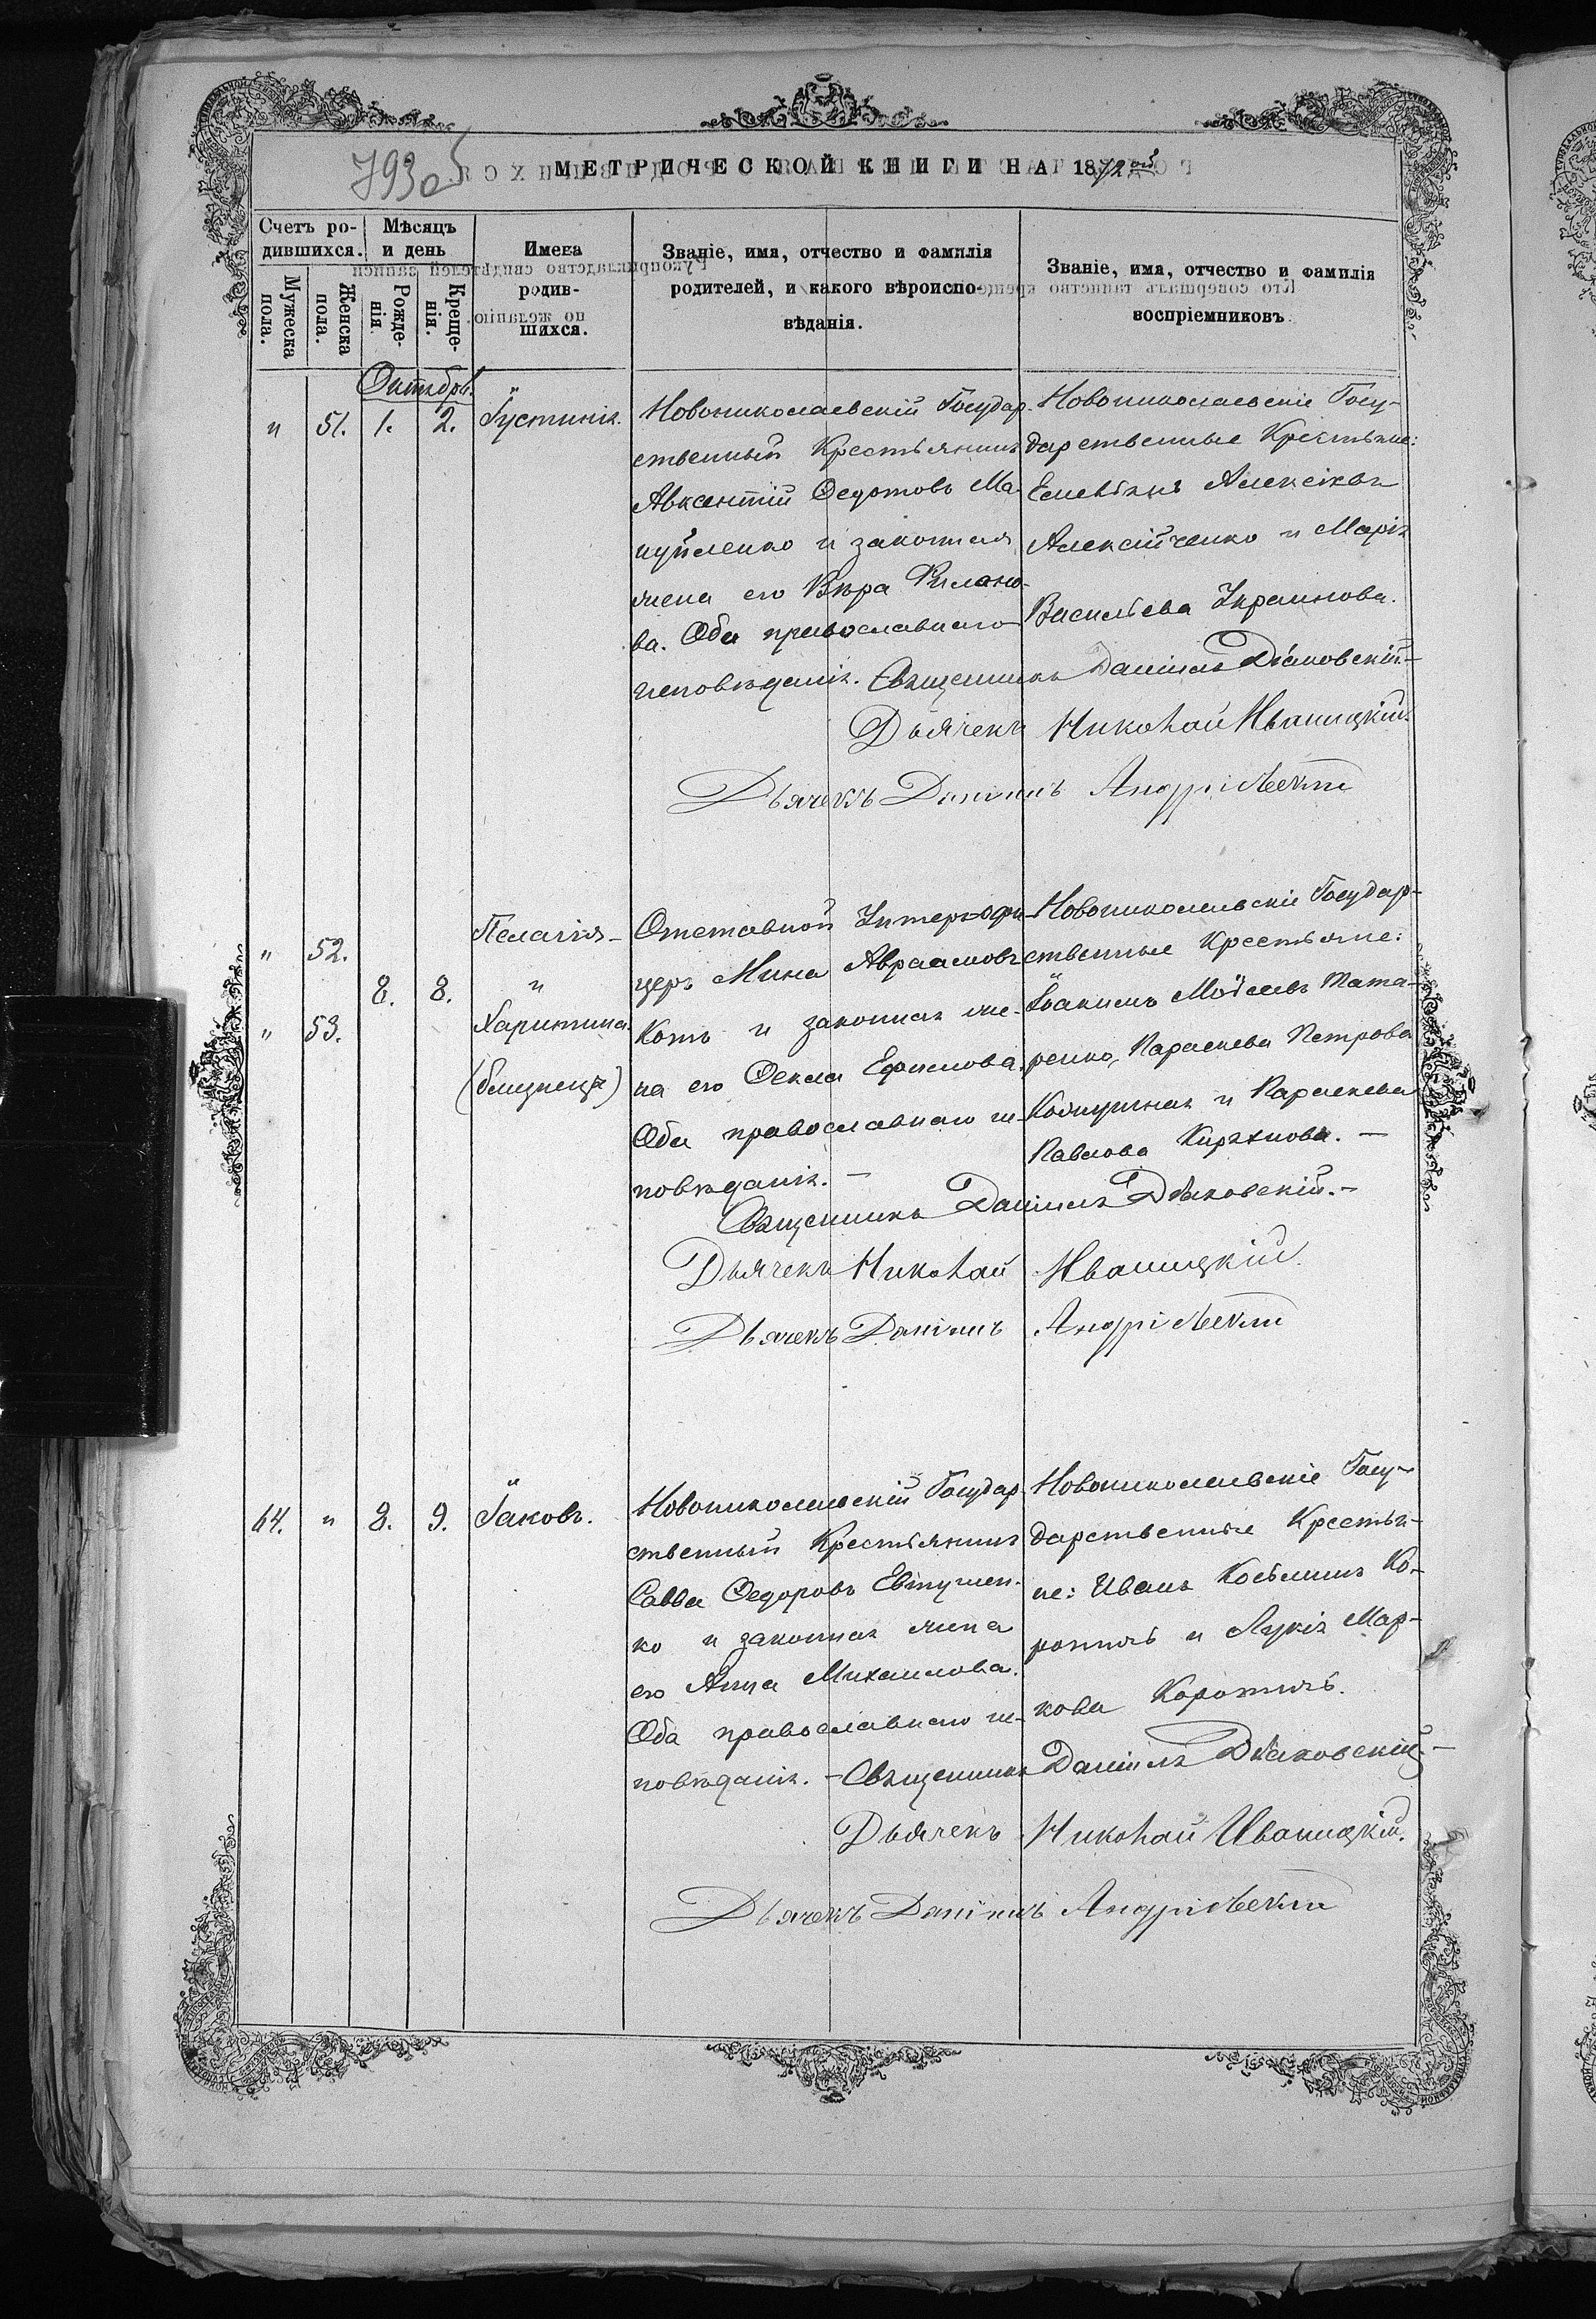 793 об
МЕТРИЧЕСКОЙ КНИГИ НА 1872ой
Счетъ ро-
дившихся.
Мѣсяцъ
и день
Мужеска
пола.
Женска
пола.
Рожде-
нія.
Креще-
нія.
Имена
родив-
шихся.
Званіе, имя, отчество и фамилія
родителей, и какого вѣроиспо-
вѣданія.
Званіе, имя, отчество и фамилія
воспріемниковъ
Октябрь.
" 51. 1. 2. Іустинія.
Новониколаевскій Государ-
ственный Крестьянинъ
Авксентій Ѳедотовъ Ма-
нуйленко и законная
жена его Вѣра
ва. Оба православнаго
исповѣданія.
Новониколаевскіе Госу-
дарственные Крестьяне:
Емельянъ Алексіевъ
Алексійченко и Марія
Васильева Украинова.
Священникъ Даніилъ Дьяковскій.-
Дьячекъ Николай Иваницкій.
Дьячекъ Даніилъ
" 52.
8. 8.
" 53.
Пелагія
и
Харитина.
(близнецы)
Отставной Унтеръ-офи-
церъ Мина Авраамовъ
Котъ и законная же-
на его Ѳекла Ефимова.
Оба православнаго ис-
повѣданія. —
Новониколаевскіе Государ-
ственные Крестьяне:
Іоакимъ Моѵсеевъ Тата-
ренко, Параскева Петрова
и Параскева
Павлова Кирьянова. —
Священникъ Даніилъ Дьяковскій.-
Дьячекъ Николай Иваницкій.
Дьячекъ Даніилъ
64. " 8. 9. Іаковъ.
Новониколаевскій Государ-
ственный Крестьянинъ
Савва Ѳедоровъ Евтушен-
ко и законная жена
его Анна Михаилова.
Оба православнаго ис-
повѣданія. —
Новониколаевскіе Госу-
дарственные Крестья-
не: Иванъ Косьминъ Ко-
ротичъ и Лукія Мар-
кова Коротичъ.
Священникъ Даніилъ Дьяковскій.-
Дьячекъ Николай Иваницкій.
Дьячекъ Даніилъ